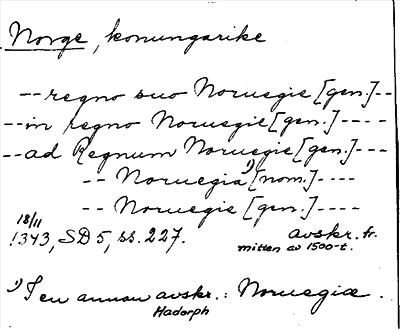 Norge, konungarike
--regno suo Noruegie [gen.]--
--in regno Noruegie [gen.]----
--ad Regnum Noruegie [gen.]---
-- Noruegia¹) [nom.]----
-- Noruegie [gen.]----
18/11
1343, SD 5, ss. 227. avskr. fr.
mitten av 1500-t.
¹) I en annan avskr.: Noruegiæ.
Hadorph